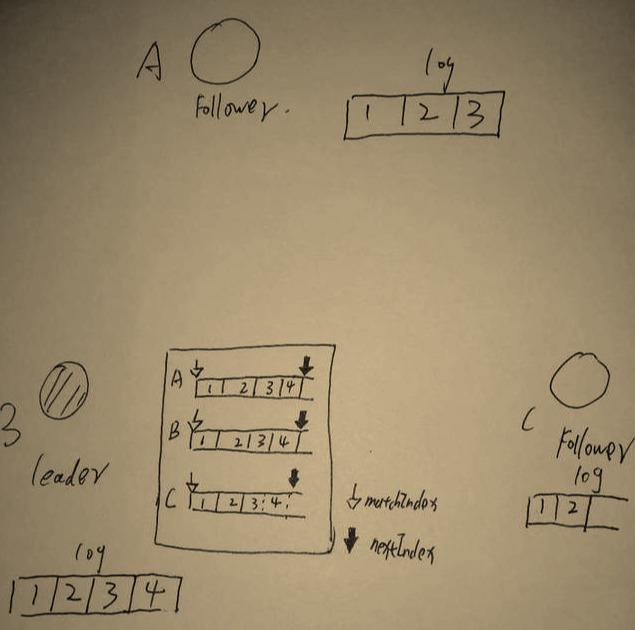 A
Follower.
log
1 2 3
B
leader
log
1 2 3 4
A 1 2 3 4
B 1 2 3 4
C 1 2 3 4
matchIndex
nextIndex
C
Follower
log
1 2